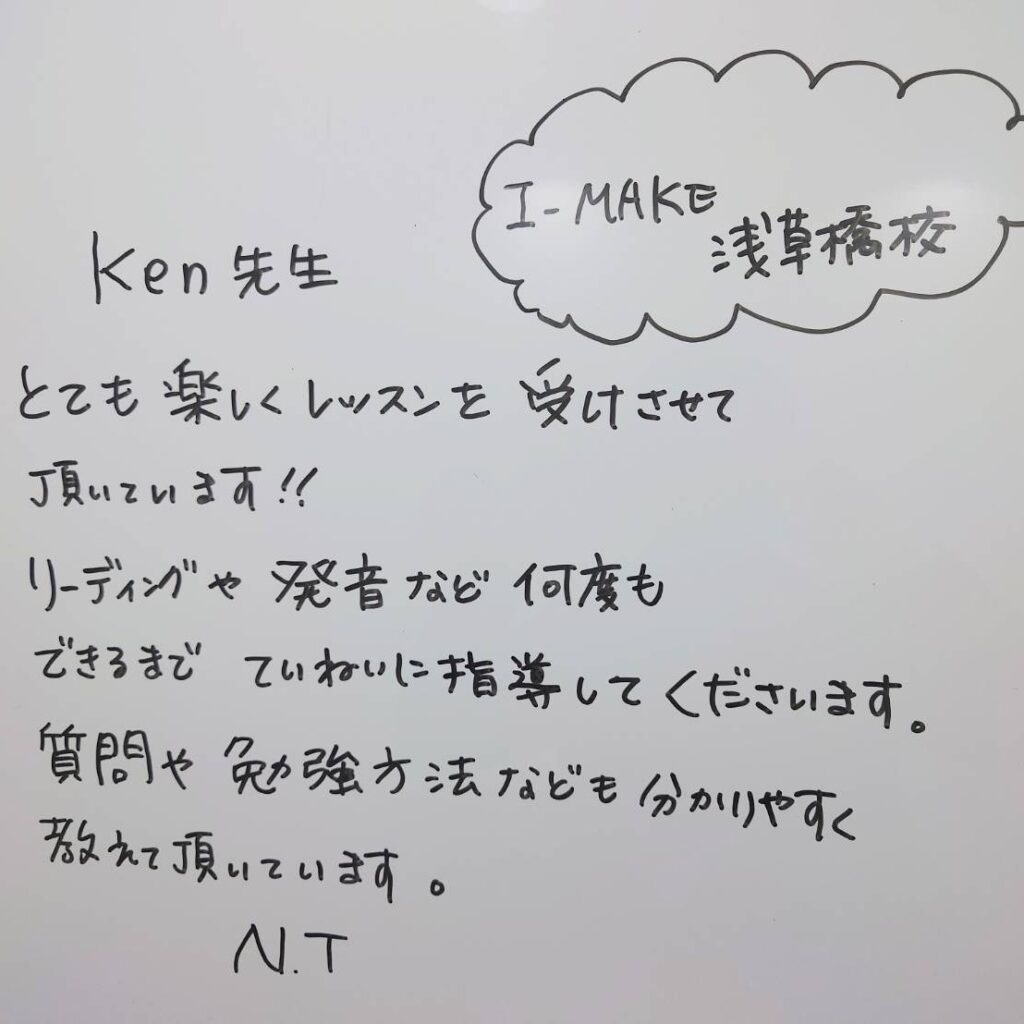 I-MAKE
浅草橋校
Ken 先生
とても 楽しく レッスンを 受けさせて
頂いています!!
リーディングや 発音など 何度も
できるまで ていねいに指導してくださいます。
質問や 勉強方法なども 分かりやすく
教えて頂いています。
N.T